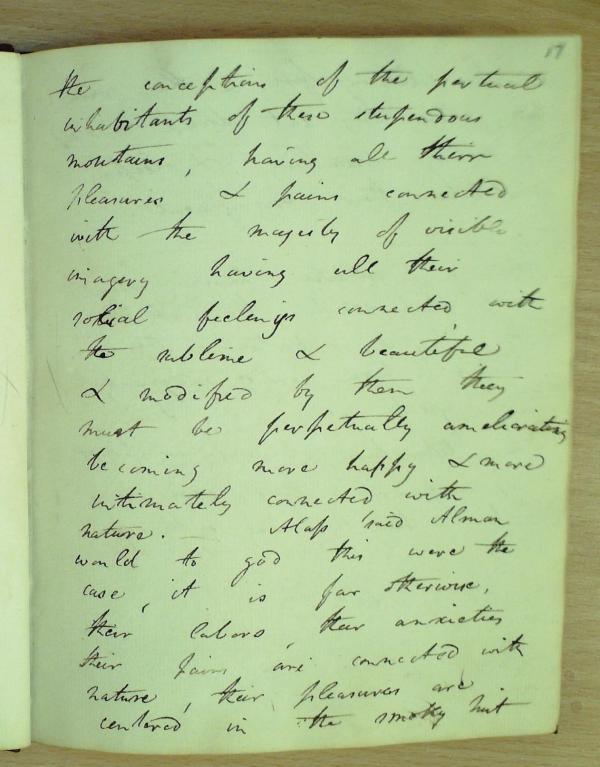 the conceptions of the pertual
inhabitants of these stupendous
mountains, having all their
pleasures & pains connected
with the majesty of visible
imagery having all their
social feelings connected with
the sublime & beautiful
& modified by them they
must be perpetually ameliorating
becoming more happy & more
intimately connected with
nature. Alass said Alman
would to god this were the
case, it is far otherwise,
their labors, their anxieties
their pains are connected with
nature, their pleasures are
centered in the smoky hut